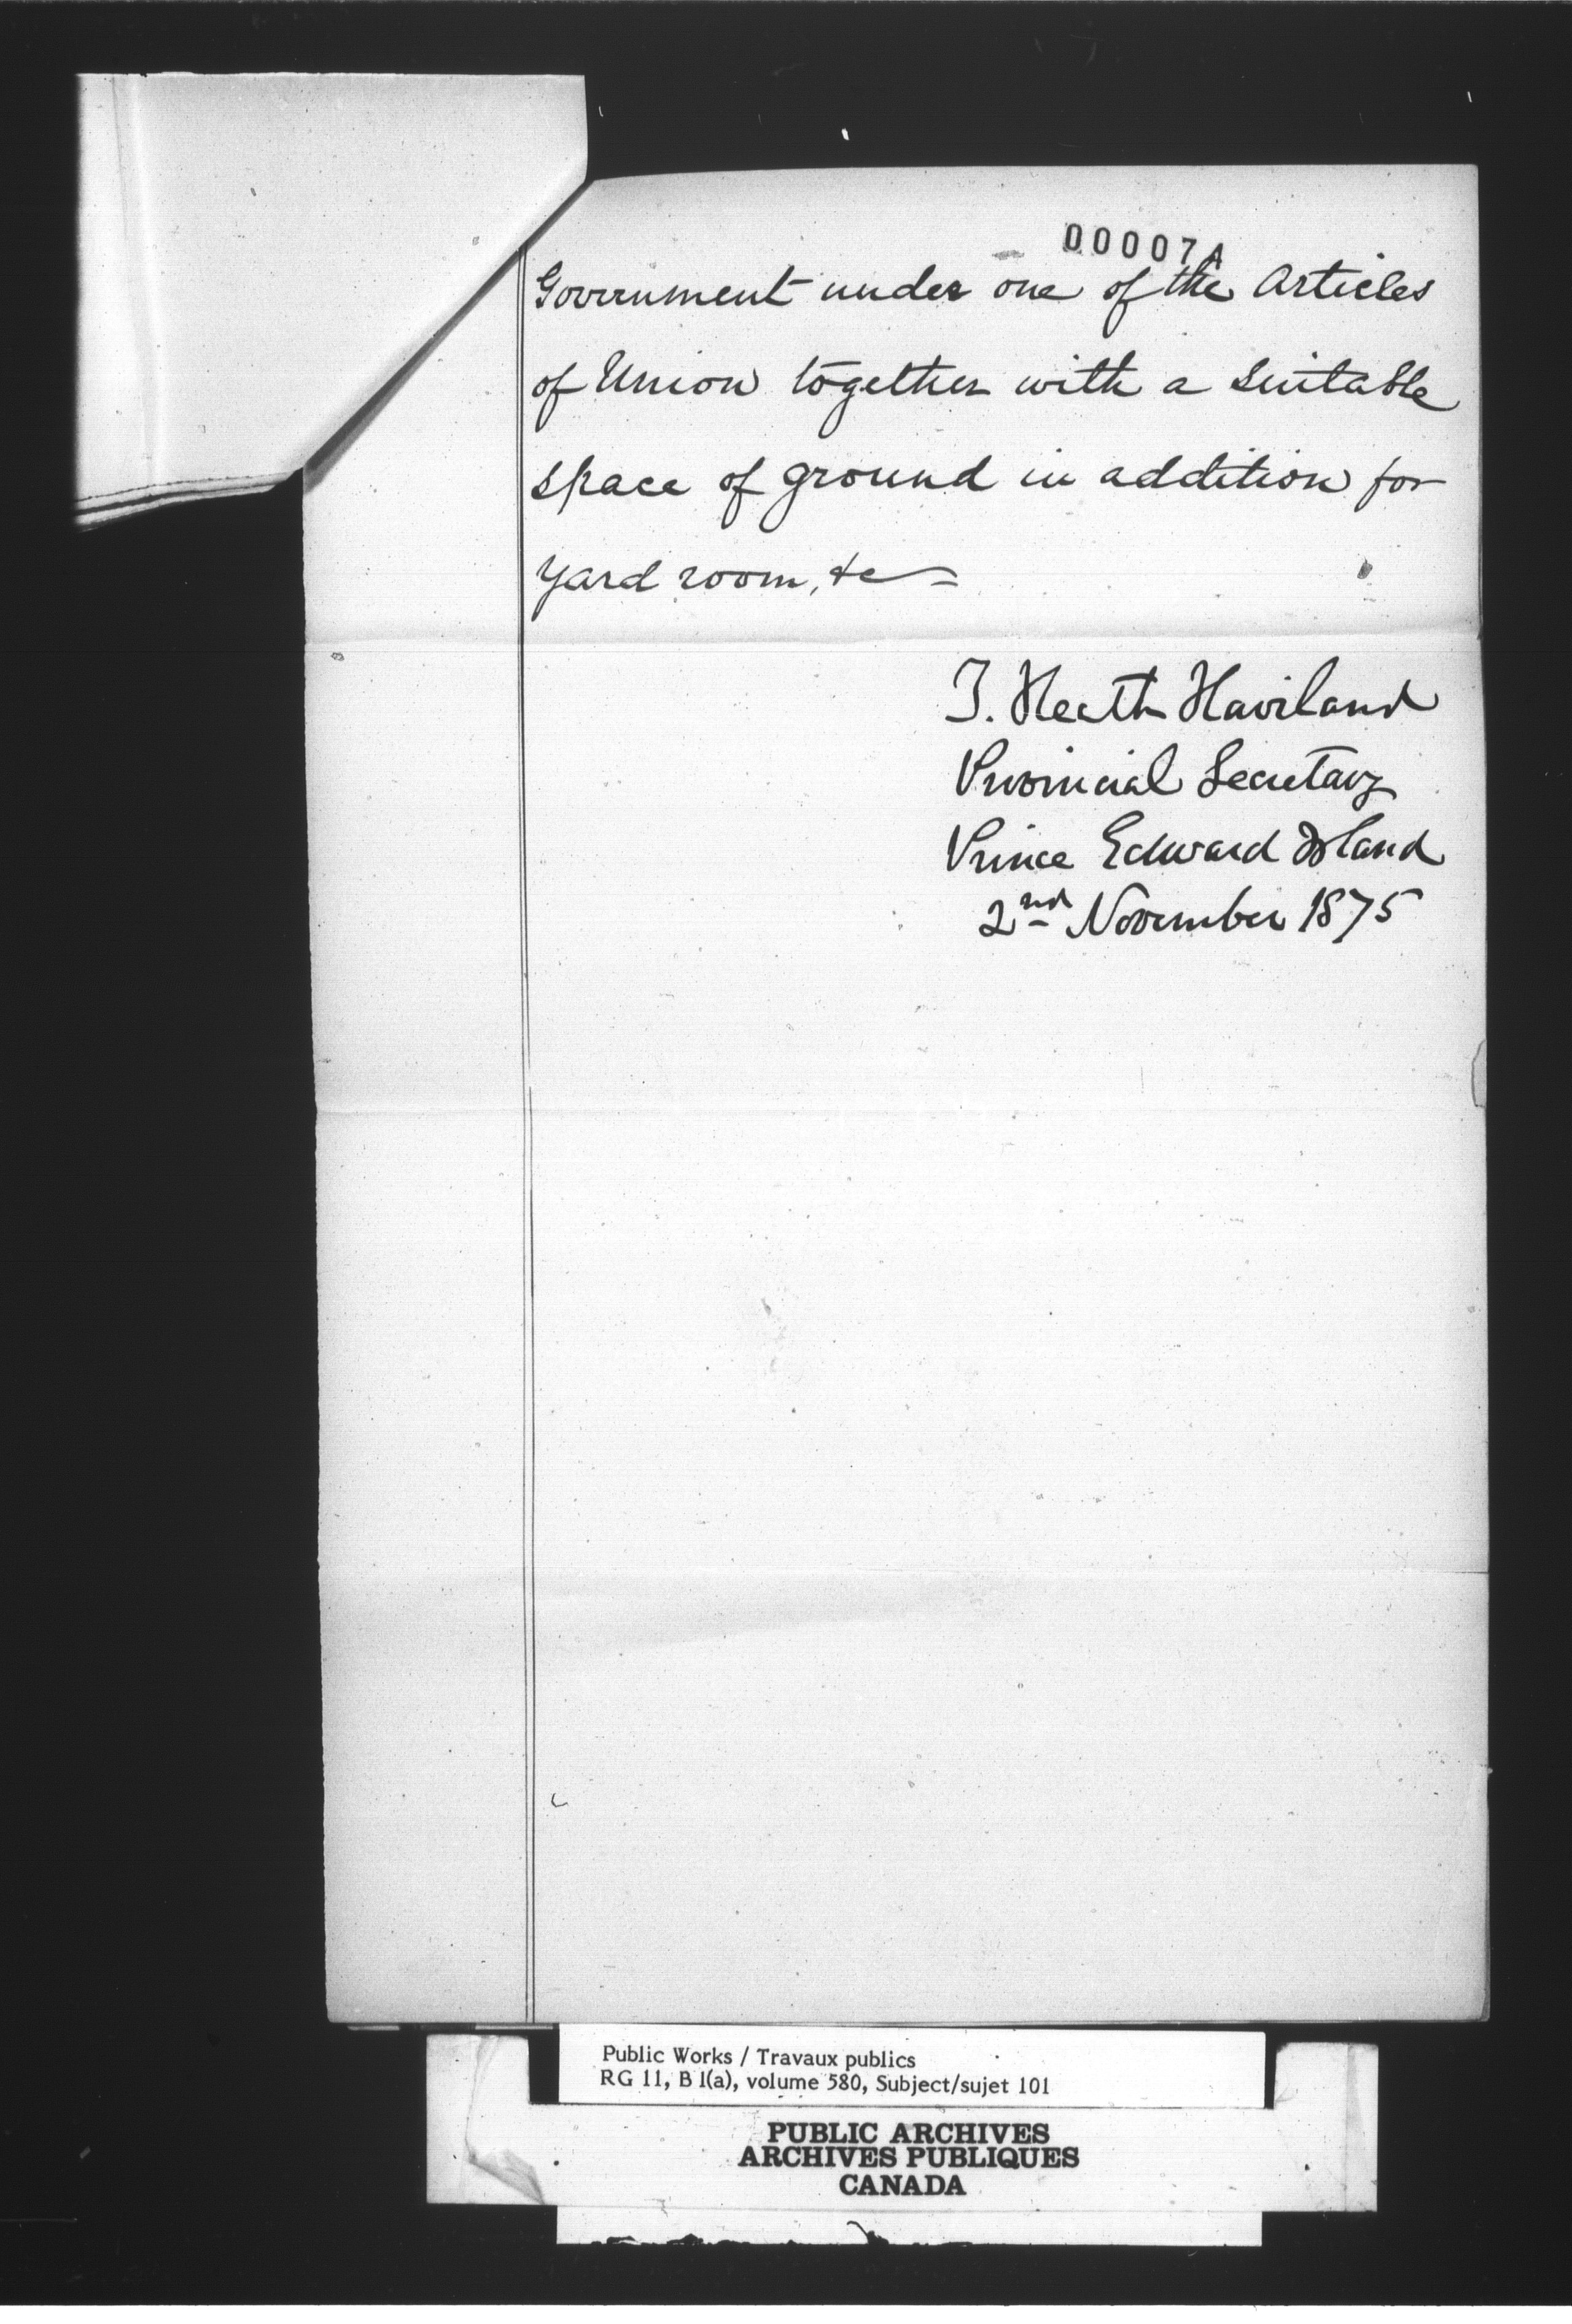 00007A
Government under one of the Articles
of Union together with a suitable
space of ground in addition for
yard room, &c
T. Heath Haviland
Provincial Secretary
Prince Edward Island
2nd November 1875
Public Works / Travaux publics
RG 11, B 1(a), volume 580, Subject/sujet 101
PUBLIC ARCHIVES
ARCHIVES PUBLIQUES
CANADA